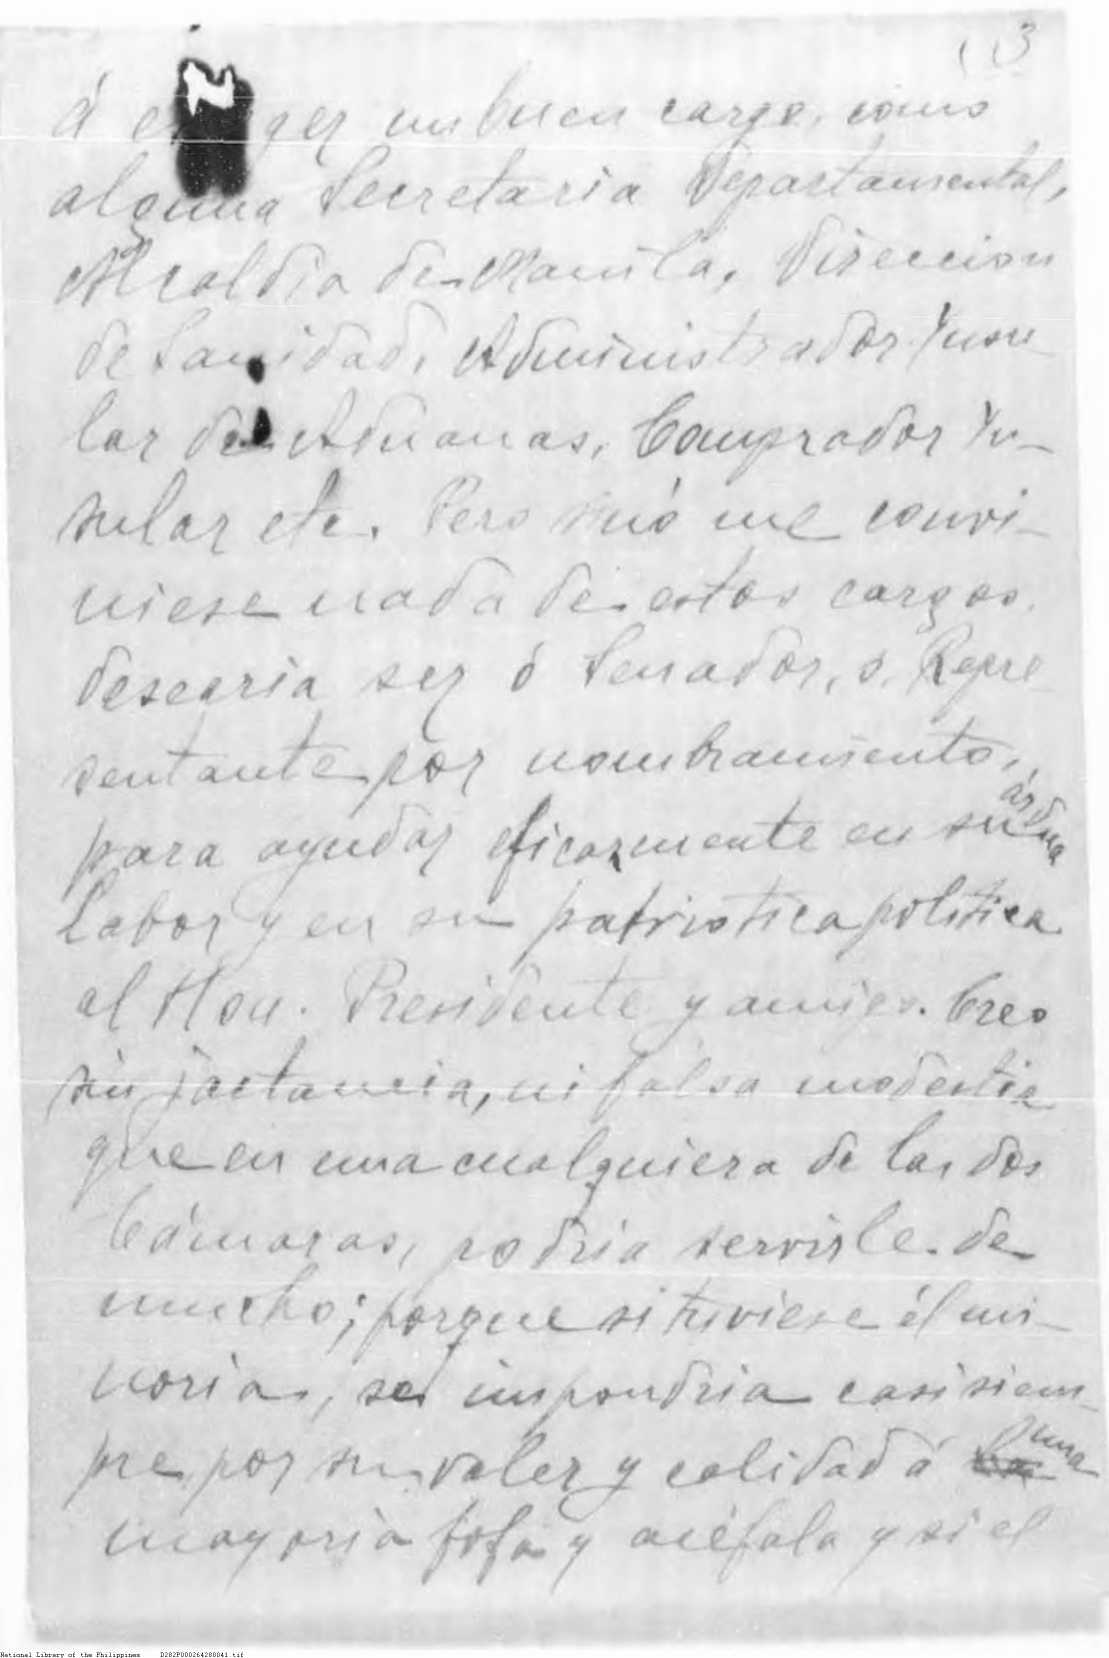 (3
á escoger un buen cargo, como
alguna Secretaria Departamental,
Alcaldia de Manila, Direccion
de Sanidad, Administrador Insu-
lar de Aduanas, Comprador In-
sular etc. Pero sinó me convi-
niese nada de estos cargos,
desearia ser ó Senador, ó Repre-
sentante por nombramiento,
para ayudar eficazmente en su árdua
labor y en su patriotica politica
al Hon. Presidente y amigo. Creo
sin jactancia, ni falsa modestia
que en una cualquiera de las dos
Cámaras, podria servirle de
mucho; porque si tuviese él mi-
noria, se impondria casi siem-
pre por su valer y calidad á una
mayoria fofa y acéfala y si el
National Library of the Philippines D282P000264280041.tif